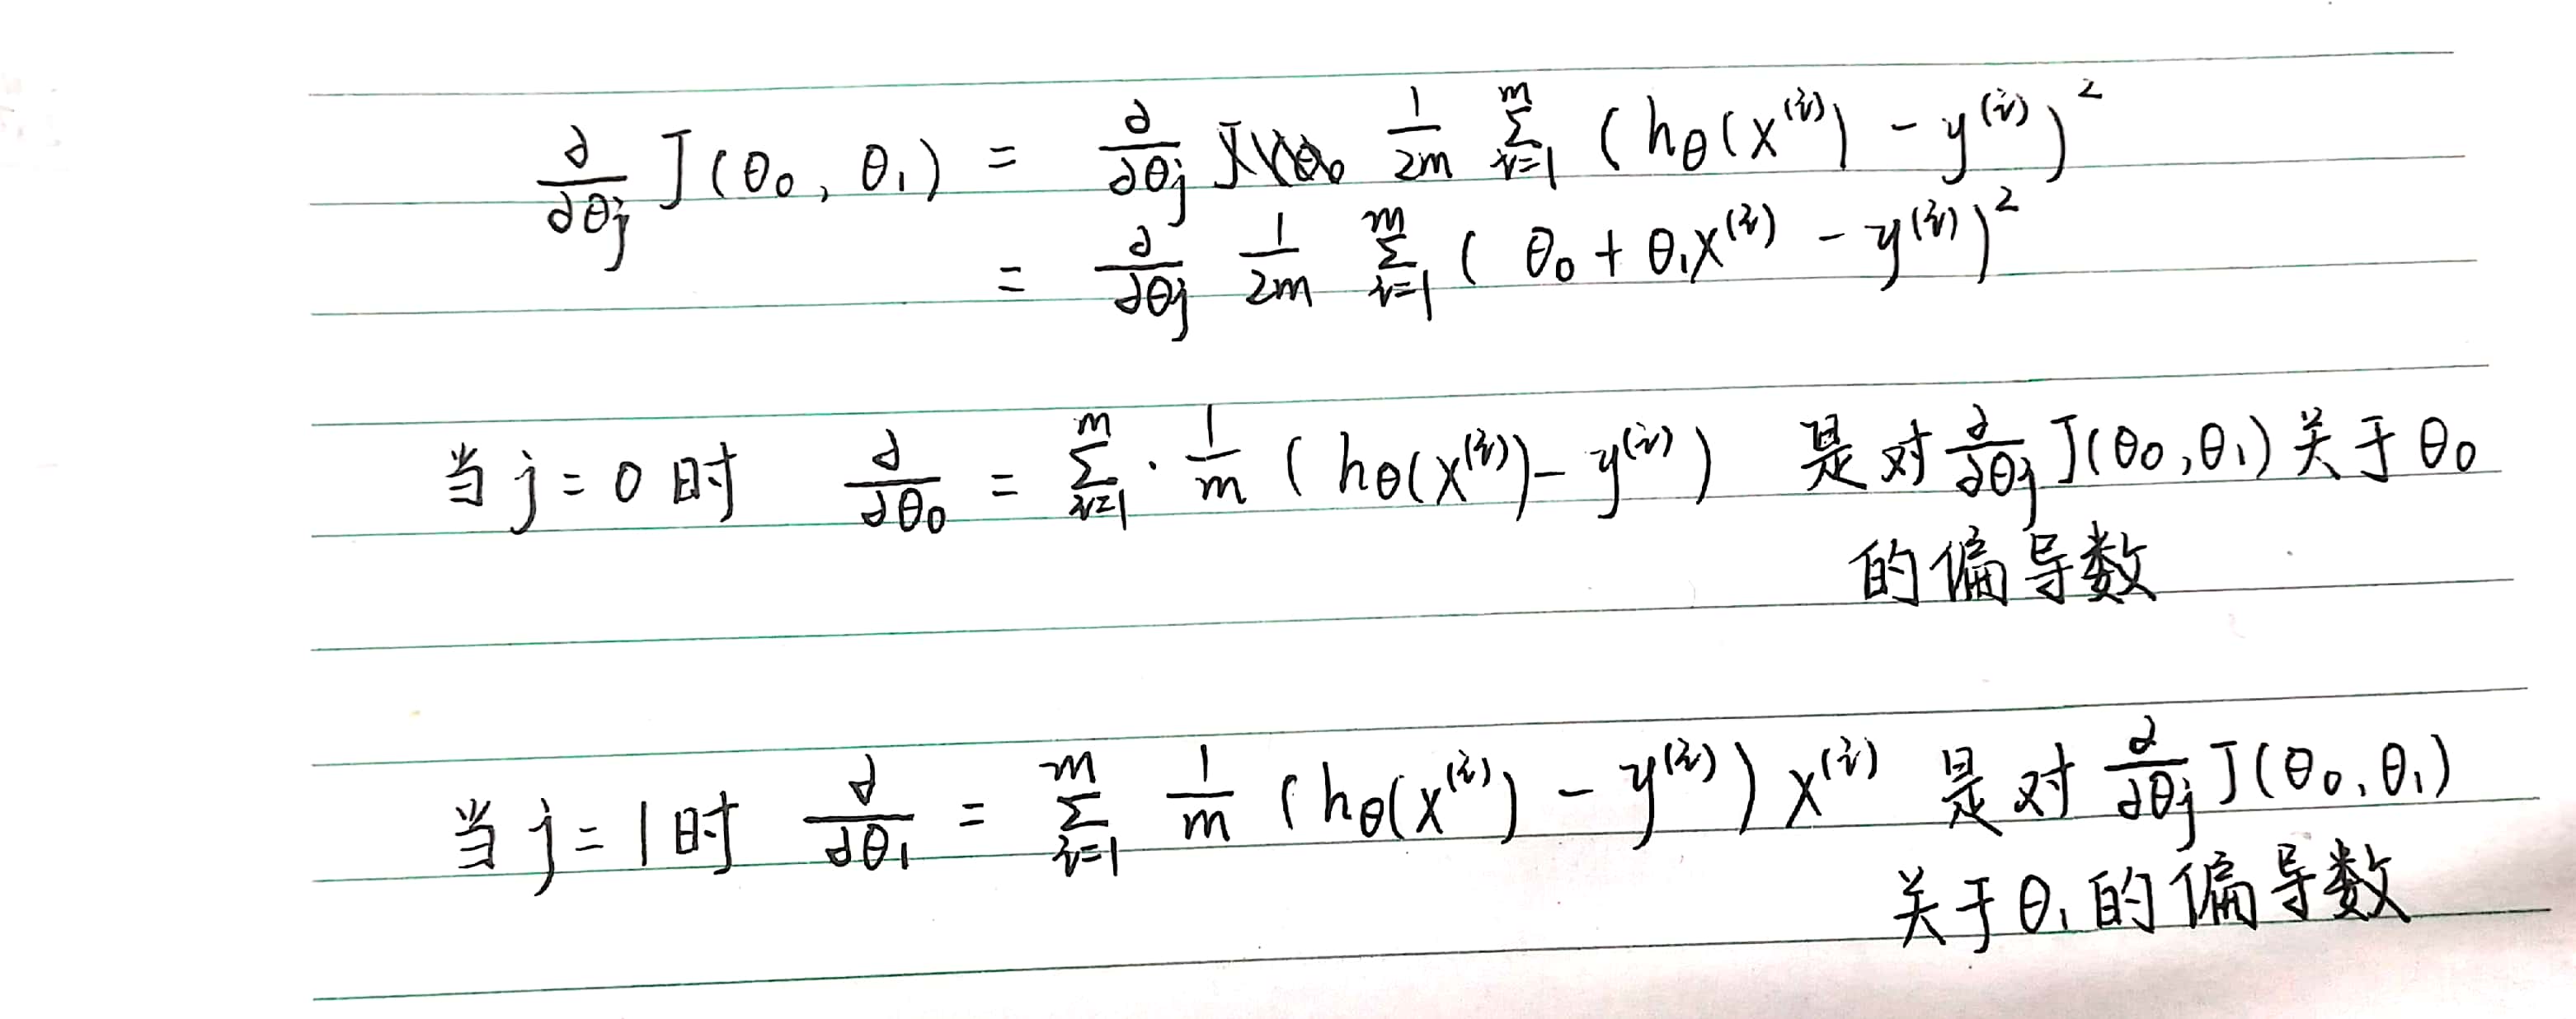 ∂/∂θj J(θ₀, θ₁) = ∂/∂θj 1/2m Σᵢ₌₁ᵐ (hθ(x⁽ⁱ⁾) - y⁽ⁱ⁾)²
= ∂/∂θj 1/2m Σᵢ₌₁ᵐ (θ₀ + θ₁x⁽ⁱ⁾ - y⁽ⁱ⁾)²
当 j = 0 时 ∂/∂θ₀ = Σᵢ₌₁ᵐ · 1/m (hθ(x⁽ⁱ⁾) - y⁽ⁱ⁾) 是对 ∂/∂θj J(θ₀,θ₁) 关于 θ₀
的偏导数
当 j = 1 时 ∂/∂θ₁ = Σᵢ₌₁ᵐ 1/m (hθ(x⁽ⁱ⁾) - y⁽ⁱ⁾) x⁽ⁱ⁾ 是对 ∂/∂θj J(θ₀,θ₁)
关于 θ₁ 的偏导数